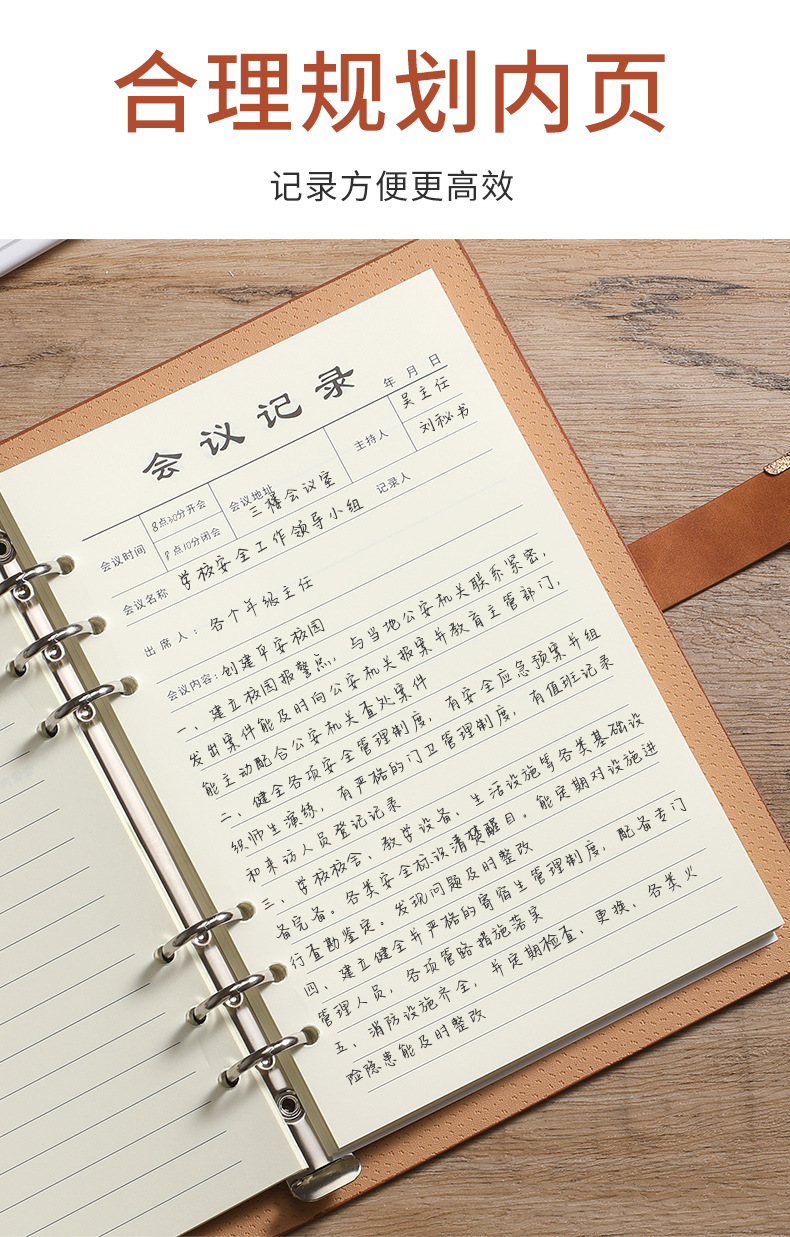 合理规划内页
记录方便更高效
会议记录
年 月 日
会议时间
8点30分开会
9点10分闭会
会议地址
三楼会议室
主持人
吴主任
记录人
刘秘书
会议名称 学校安全工作领导小组
出席人：各个年级主任
会议内容：创建平安校园
一、建立校园报警点，与当地公安机关联系紧密，
发出案件能及时向公安机关报案并教育主管部门，
能主动配合公安机关查处案件
二、健全各项安全管理制度，有安全应急预案并组
织师生演练，有严格的门卫管理制度，有值班记录
和来访人员登记记录
三、学校校舍、教学设备、生活设施等各类基础设
备完备。各类安全标识清楚醒目。能定期对设施进
行查勘鉴定。发现问题及时整改
四、建立健全并严格的寄宿生管理制度，配备专门
管理人员，各项管路措施落实
五、消防设施齐全，并定期检查、更换、各类火
险隐患能及时整改